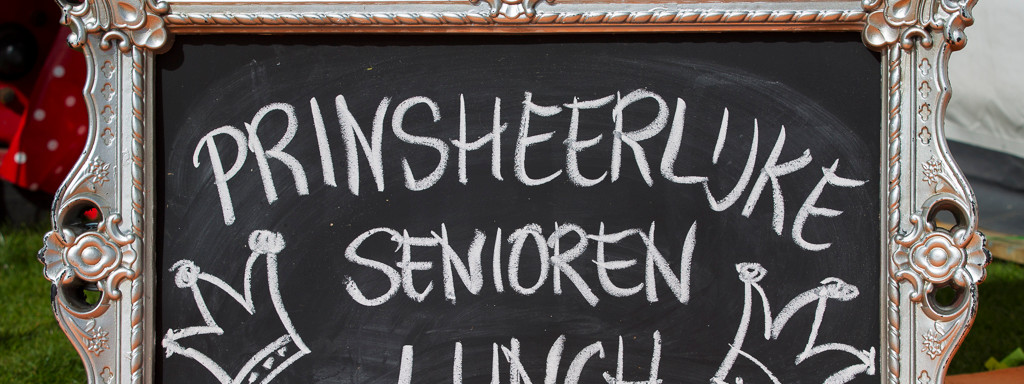 PRINSHEERLIJKE
SENIOREN
LUNCH